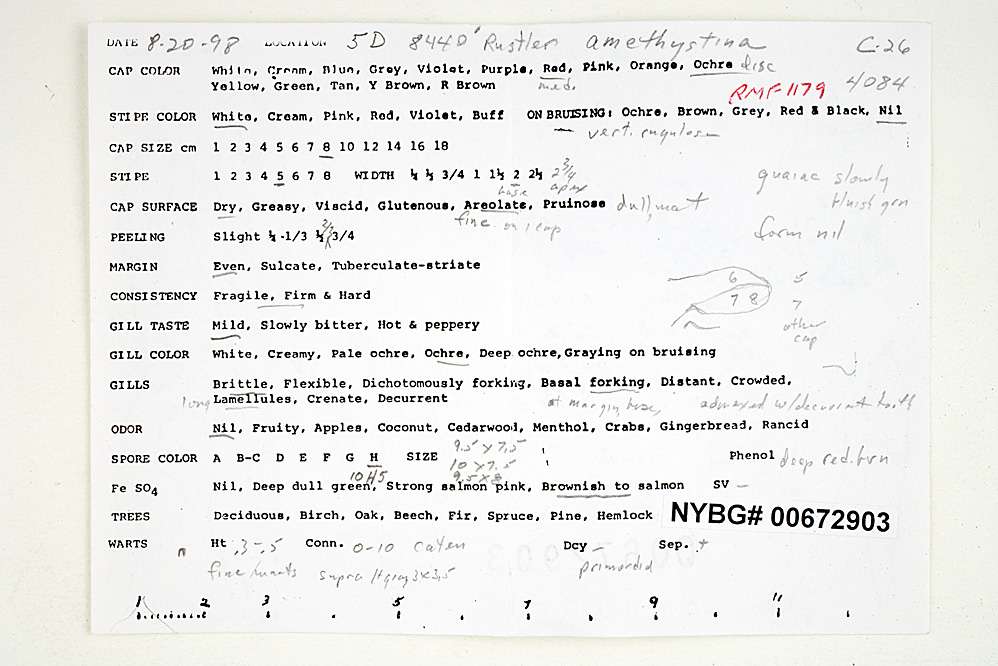 DATE 8-20-98 LOCATION 5D 8440' Rustler amethystina C-26
CAP COLOR White, Cream, Blue, Grey, Violet, Purple, Red, Pink, Orange, Ochre disc
Yellow, Green, Tan, Y Brown, R Brown med. RMF 1179 4084
STIPE COLOR White, Cream, Pink, Red, Violet, Buff ON BRUISING: Ochre, Brown, Grey, Red & Black, Nil
vert. rugulose
CAP SIZE cm 1 2 3 4 5 6 7 8 10 12 14 16 18
STIPE 1 2 3 4 5 6 7 8 WIDTH ¼ ½ 3/4 1 1½ 2 2½ 2 3/4
base apex
guaiac slowly
bluish grn
CAP SURFACE Dry, Greasy, Viscid, Glutenous, Areolate, Pruinose dull, mat
fine on 1 cap
form nil
PEELING Slight ¼-1/3 ½ 2/3 3/4
MARGIN Even, Sulcate, Tuberculate-striate
6 5
CONSISTENCY Fragile, Firm & Hard
7 8 7
other
cap
GILL TASTE Mild, Slowly bitter, Hot & peppery
GILL COLOR White, Creamy, Pale ochre, Ochre, Deep ochre, Graying on bruising
GILLS Brittle, Flexible, Dichotomously forking, Basal forking, Distant, Crowded,
long Lamellules, Crenate, Decurrent at margin, base, adnexed w/decurrent tooth
ODOR Nil, Fruity, Apples, Coconut, Cedarwood, Menthol, Crabs, Gingerbread, Rancid
9.5 x 7.5
SPORE COLOR A B-C D E F G H SIZE 10 x 7.5 Phenol deep red-brn
10 H 5 9.5 x 8
Fe SO4 Nil, Deep dull green, Strong salmon pink, Brownish to salmon SV -
TREES Deciduous, Birch, Oak, Beech, Fir, Spruce, Pine, Hemlock NYBG# 00672903
WARTS n Ht .3-.5 Conn. 0-10 caten Dcy - Sep. +
fine/warts supra Htgray 3x3.5 primordid
1 2 3 5 7 9 11